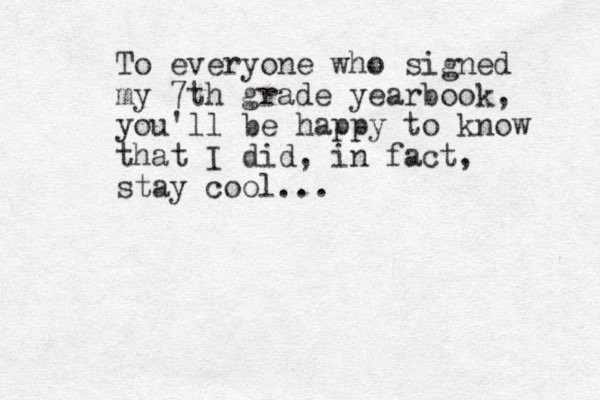 To everyone who signed
my 7th grade yearbook,
you'll be happy to know
that I did, in fact,
stay cool...